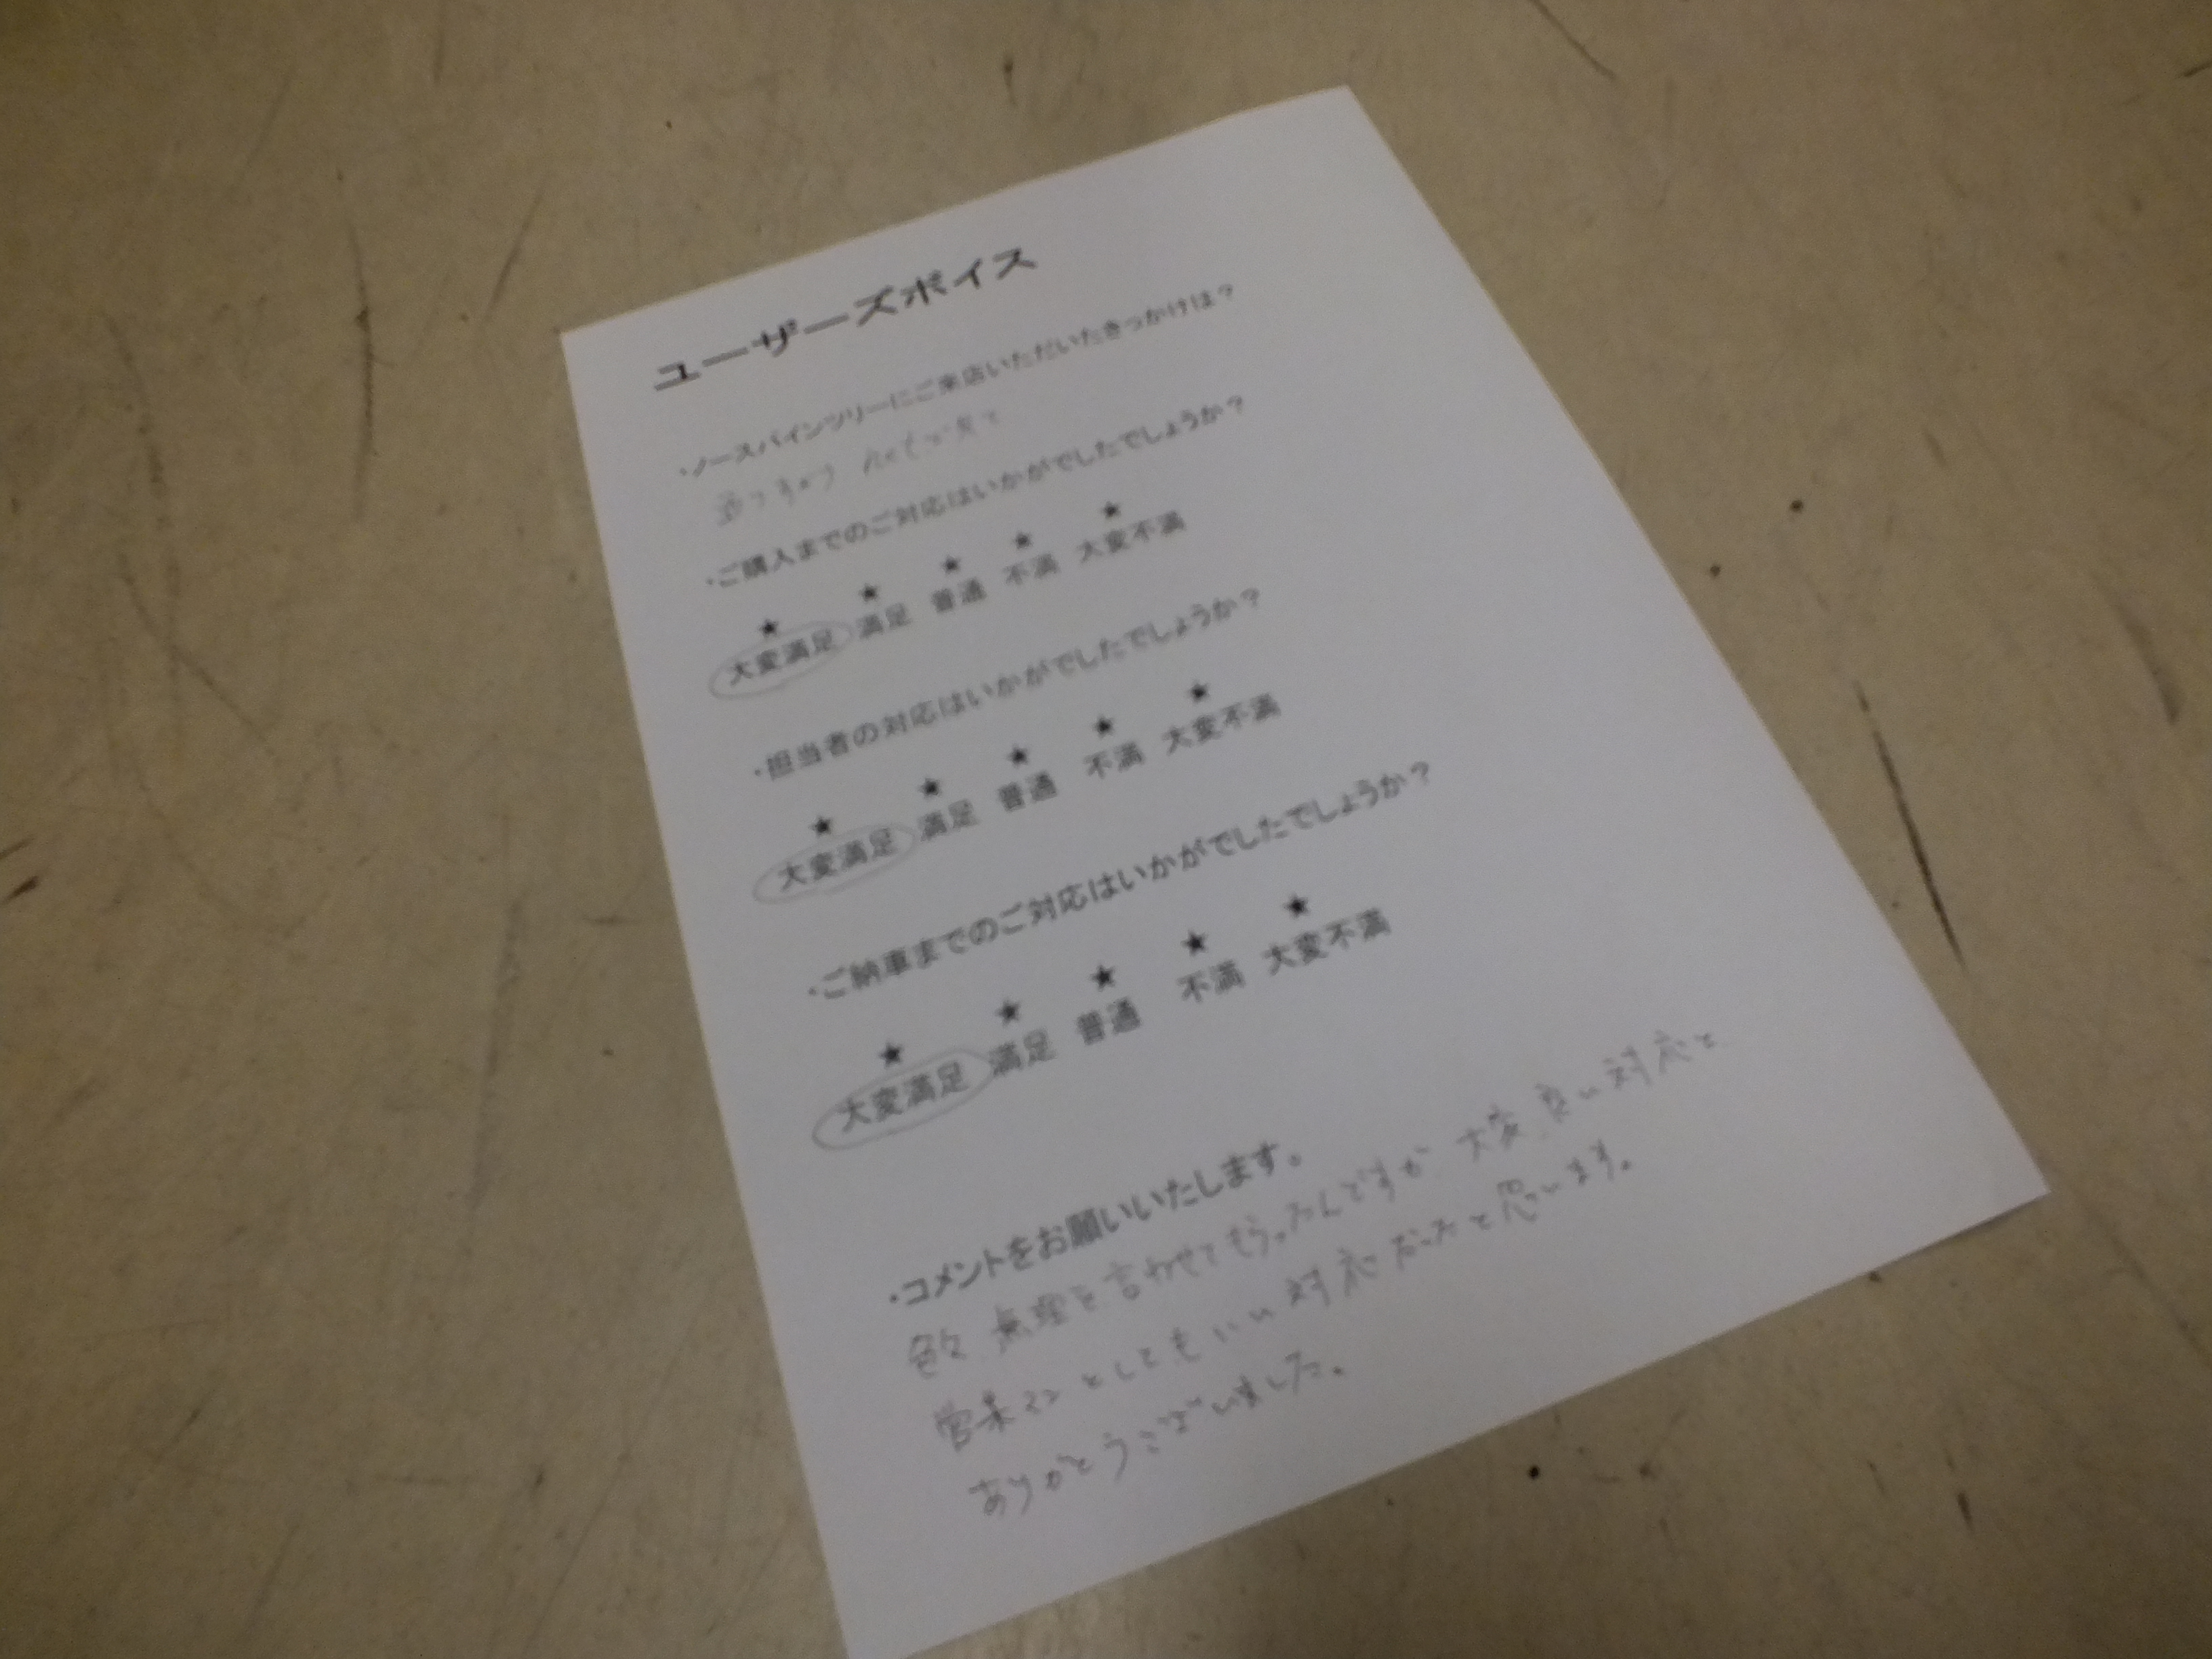 ユーザーズボイス
・ノースパインツリーにご来店いただいたきっかけは？
netを見て
・ご購入までのご対応はいかがでしたでしょうか？
★ ★ ★ ★ ★
大変満足 満足 普通 不満 大変不満
・担当者の対応はいかがでしたでしょうか？
★ ★ ★ ★ ★
大変満足 満足 普通 不満 大変不満
・ご納車までのご対応はいかがでしたでしょうか？
★ ★ ★ ★ ★
大変満足 満足 普通 不満 大変不満
・コメントをお願いいたします。
色々 無理を言わせてもらったんですが、大変 良い対応と
営業マンとしてもいい対応だったと思います。
ありがとうございました。